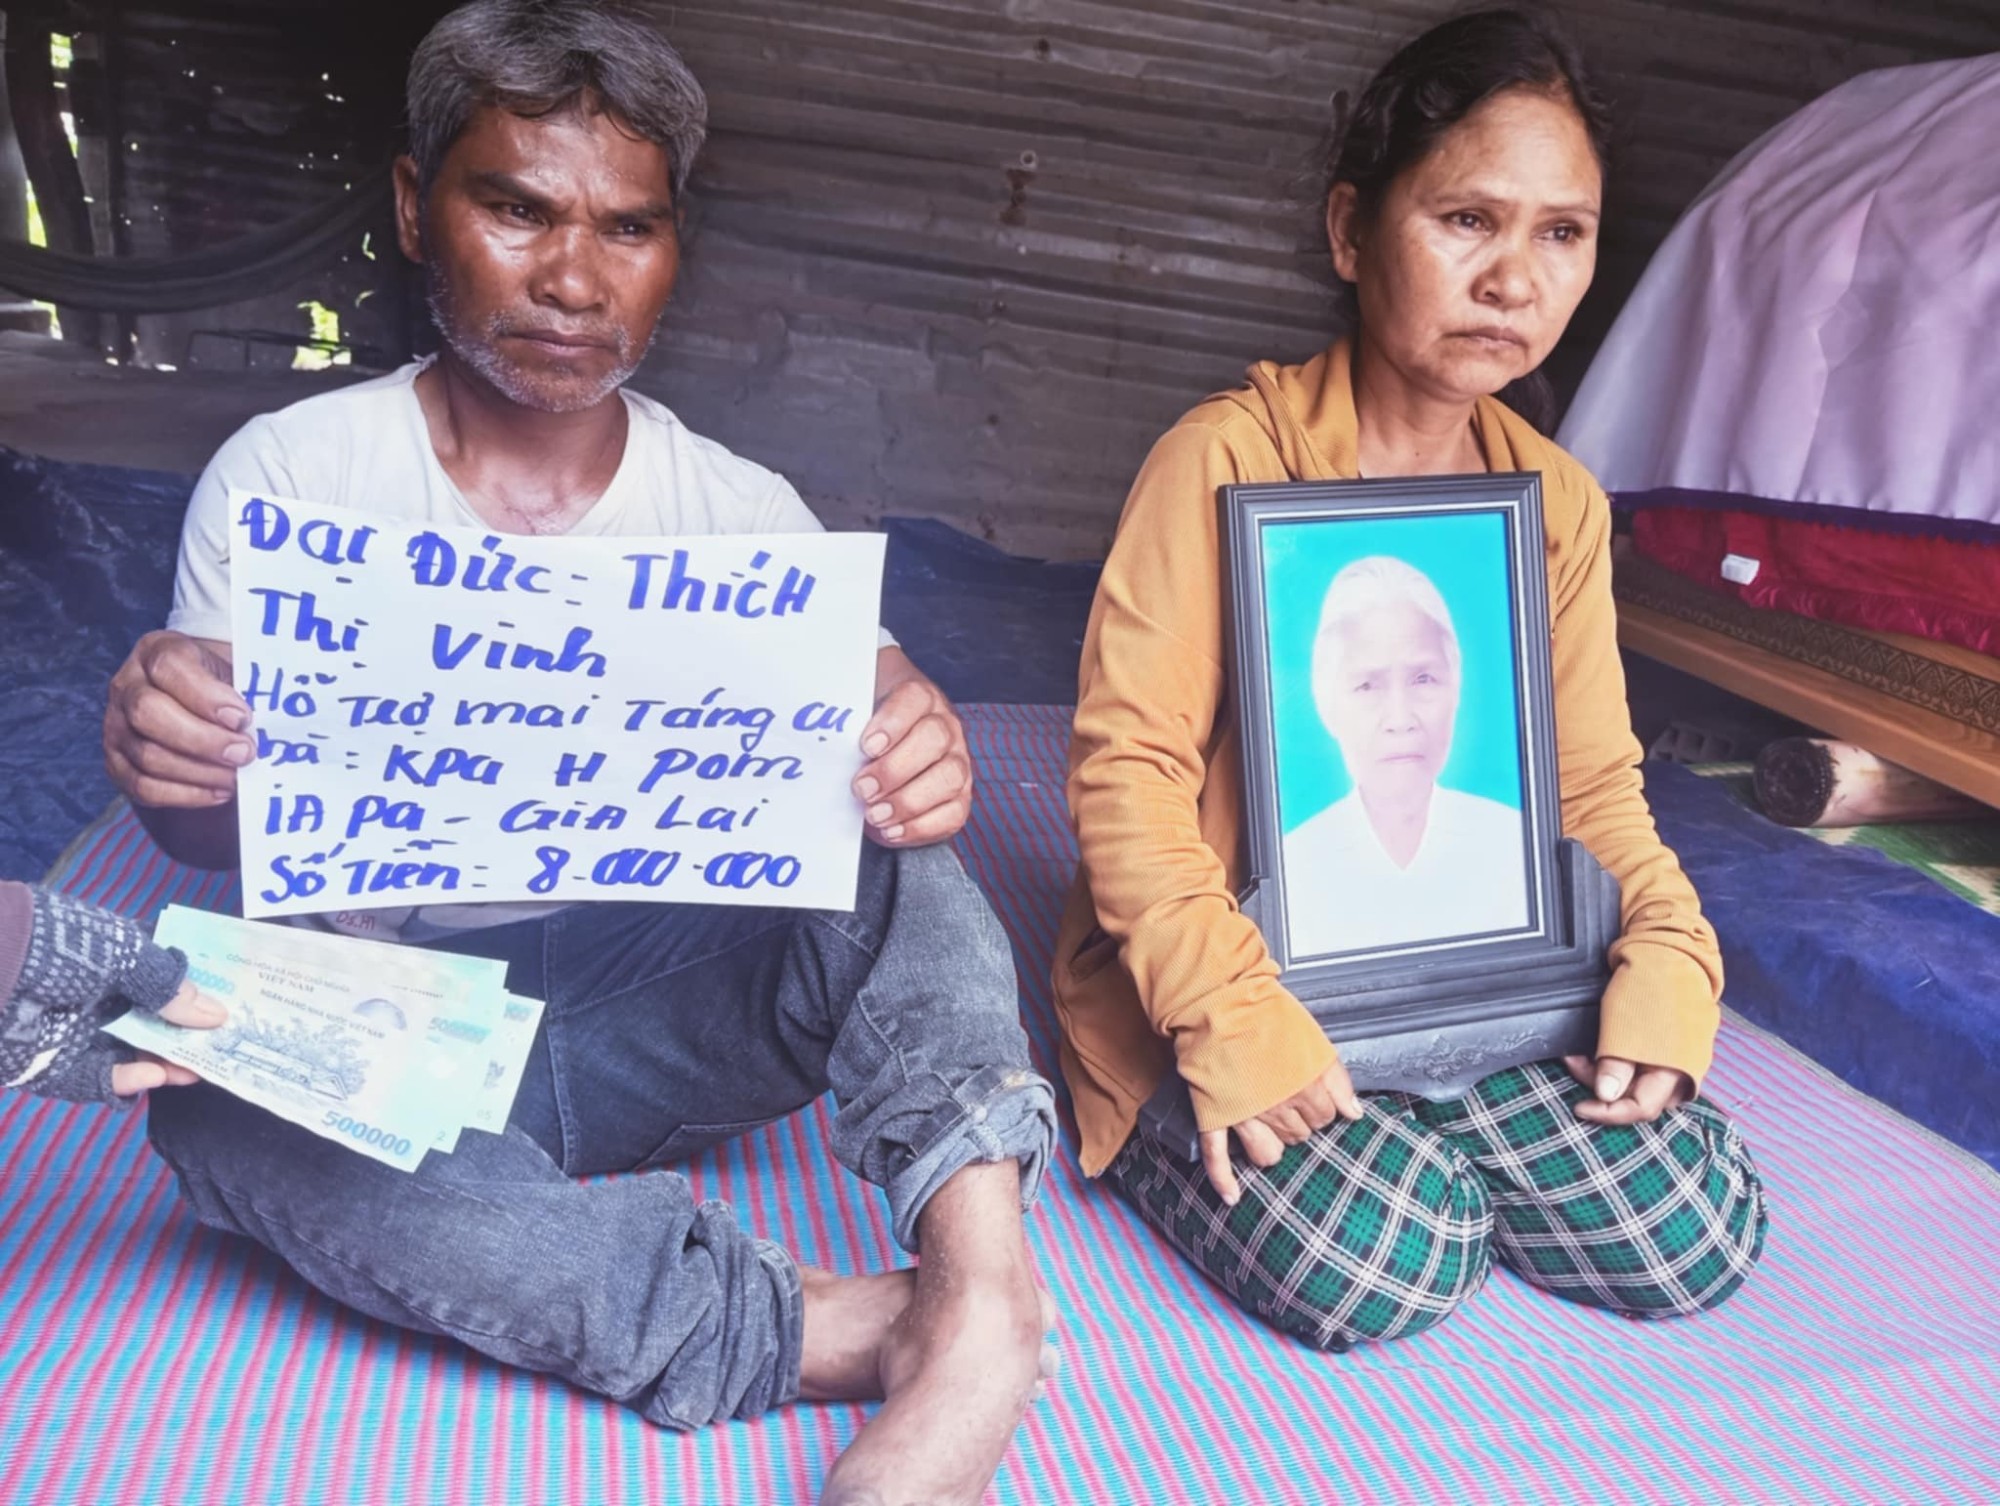 Đại Đức: Thích
Thị Vinh
Hỗ Trợ mai Táng cụ
bà: KPa H Pom
IA Pa - Gia Lai
Số Tiền: 8.000.000
CỘNG HÒA XÃ HỘI CHỦ NGHĨA
VIỆT NAM
NGÂN HÀNG NHÀ NƯỚC VIỆT NAM
NĂM TRĂM
NGHÌN ĐỒNG
500000
500000